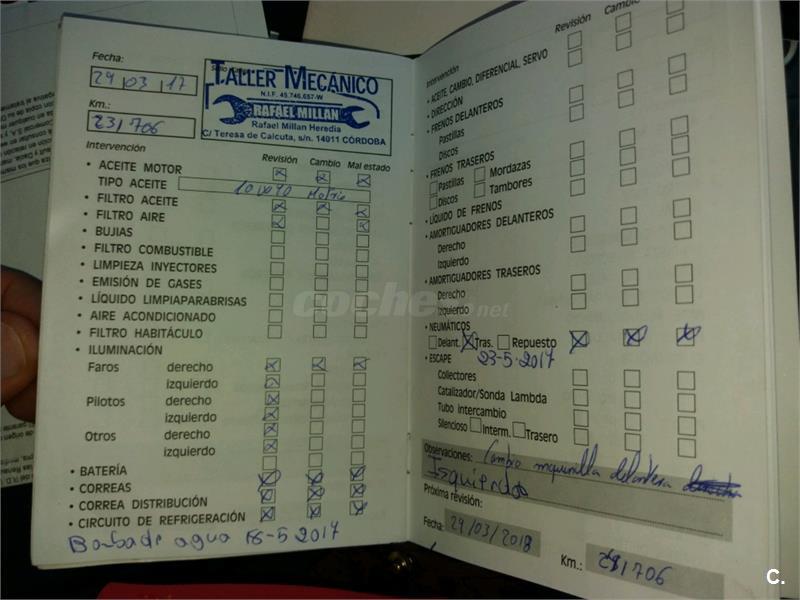 Fecha:
29 03 17
Km.:
231706
TALLER MECÁNICO
N.I.F. 45.746.657-W
RAFAEL MILLAN
Rafael Millan Heredia
C/ Teresa de Calcuta, s/n. 14011 CÓRDOBA
Intervención Revisión Cambio Mal estado
• ACEITE MOTOR
TIPO ACEITE
• FILTRO ACEITE
• FILTRO AIRE
• BUJIAS
• FILTRO COMBUSTIBLE
• LIMPIEZA INYECTORES
• EMISIÓN DE GASES
• LÍQUIDO LIMPIAPARABRISAS
• AIRE ACONDICIONADO
• FILTRO HABITÁCULO
• ILUMINACIÓN
Faros derecho
izquierdo
Pilotos derecho
izquierdo
Otros derecho
izquierdo
• BATERÍA
• CORREAS
• CORREA DISTRIBUCIÓN
• CIRCUITO DE REFRIGERACIÓN
Bombade agua 18-5 2017
Intervención Revisión Cambio
• ACEITE, CAMBIO, DIFERENCIAL, SERVO
• DIRECCIÓN
• FRENOS DELANTEROS
Pastillas
Discos
• FRENOS TRASEROS
Pastillas Mordazas
Discos Tambores
• LÍQUIDO DE FRENOS
• AMORTIGUADORES DELANTEROS
Derecho
Izquierdo
• AMORTIGUADORES TRASEROS
Derecho
Izquierdo
• NEUMÁTICOS
Delant. Tras. Repuesto
• ESCAPE 23-5-2017
Colectores
Catalizador/Sonda Lambda
Tubo intercambio
Silencioso Interm. Trasero
Observaciones: Cambio delantera
Isquierdos
Próxima revisión:
Fecha: 29/03/2018
Km.: 251706
coches.net
C.